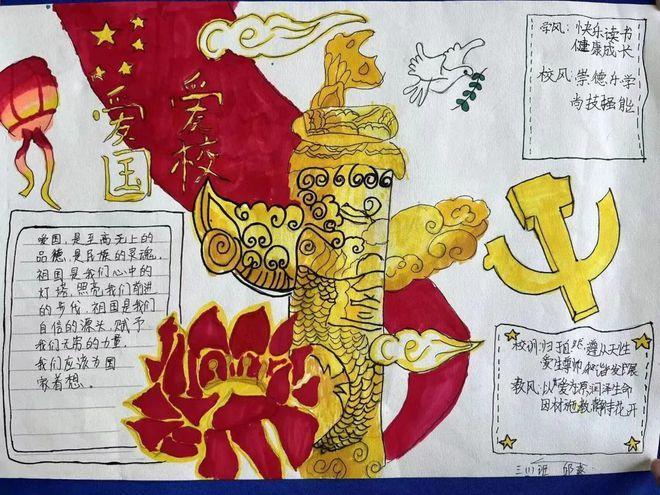 爱国
爱校
学风：快乐读书
健康成长
校风：崇德乐学
尚技强能
爱国，是至高无上的
品德，是民族的灵魂，
祖国是我们心中的
灯塔，照亮我们前进
的步伐，祖国是我们
自信的源头，赋予
我们无穷的力量，
我们应该为国
家着想。
校训：归
遵从天性
爱生尊师 和谐发展
教风：以爱为源 润泽生命
因材施教 静待花开
三(1)班